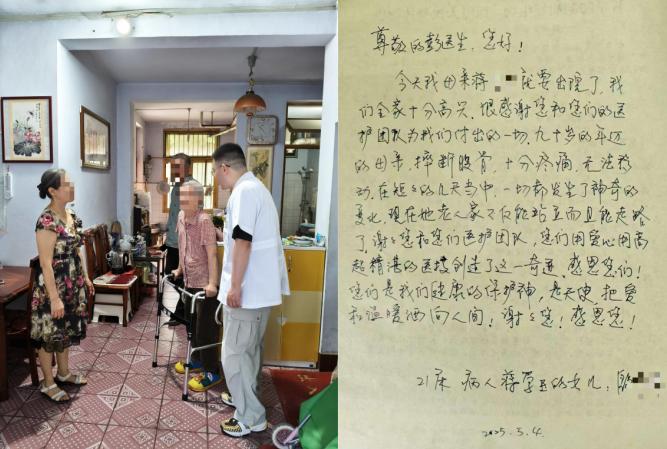 尊敬的彭医生，您好！
今天我母亲蒋就要出院了，我
们全家十分高兴，很感谢您和您们的医
护团队为我们付出的一切，九十岁的年迈
的母亲，摔断腿骨，十分疼痛，无法移
动，在短短的几天当中，一切都发生了神奇的
变化，现在她老人家不仅能站立而且能走路
了，谢谢您和您们医护团队，您们用爱心用高
超精湛的医技创造了这一奇迹，感恩您们！
您们是我们健康的保护神，是天使，把爱
和温暖洒向人间！谢谢您！感恩您！
21床 病人蒋的女儿：
2025.5.4.